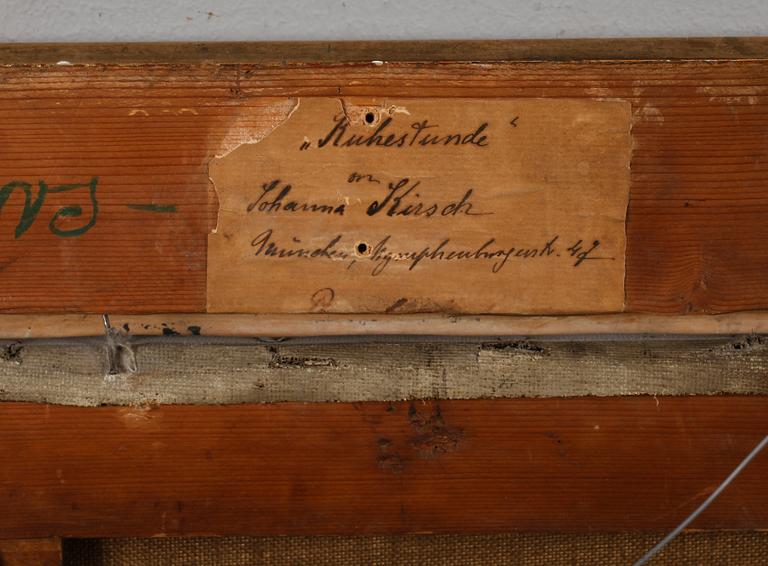 „Ruhestunde“
von
Johanna Kirsch
München, Nymphenburgerstr. 47
NS –